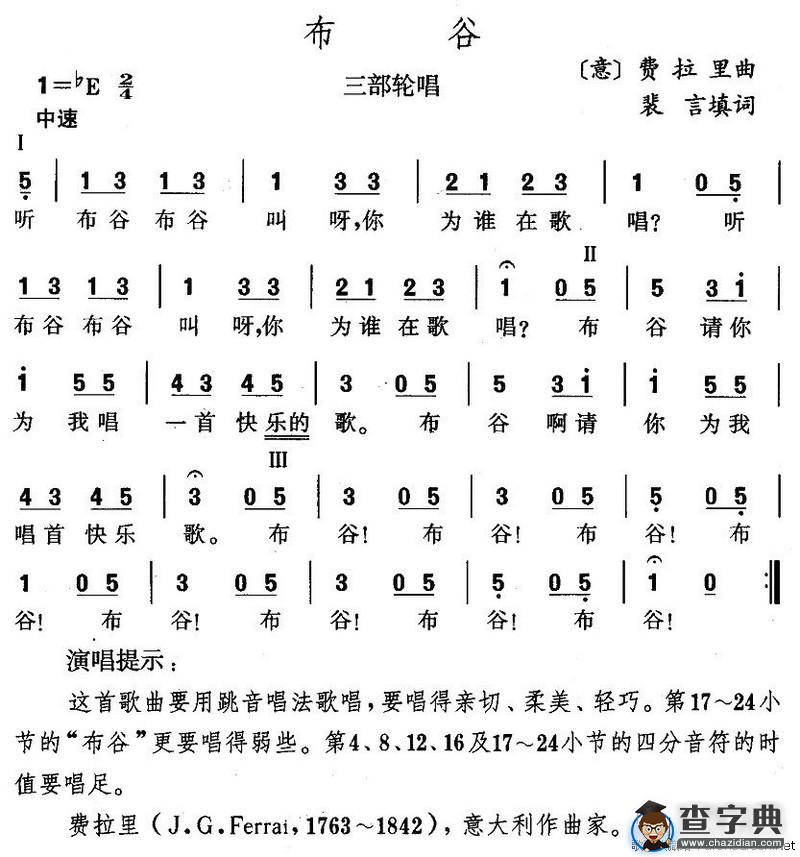 布 谷
1=♭E 2/4 三部轮唱 〔意〕费 拉 里曲
中速 裴 言填词
I
5 | 1 3 1 3 | 1 3 3 | 2 1 2 3 | 1 0 5 |
听 布谷 布谷 叫 呀,你 为谁在歌 唱? 听
II
1 3 1 3 | 1 3 3 | 2 1 2 3 | 1 0 5 | 5 3 1
布谷 布谷 叫 呀,你 为谁在歌 唱? 布 谷 请你
1 5 5 | 4 3 4 5 | 3 0 5 | 5 3 1 | 1 5 5
为 我唱 一首 快乐的 歌。 布 谷 啊请 你 为我
III
4 3 4 5 | 3 0 5 | 3 0 5 | 3 0 5 | 5 0 5 |
唱首快乐 歌。 布 谷! 布 谷! 布 谷! 布
1 0 5 | 3 0 5 | 3 0 5 | 5 0 5 | 1 0 :‖
谷! 布 谷! 布 谷! 布 谷! 布 谷!
演唱提示:
这首歌曲要用跳音唱法歌唱,要唱得亲切、柔美、轻巧。第17~24小
节的“布谷”更要唱得弱些。第4、8、12、16及17~24小节的四分音符的时
值要唱足。
费拉里(J.G.Ferrai,1763~1842),意大利作曲家。
查字典
www.chazidian.com